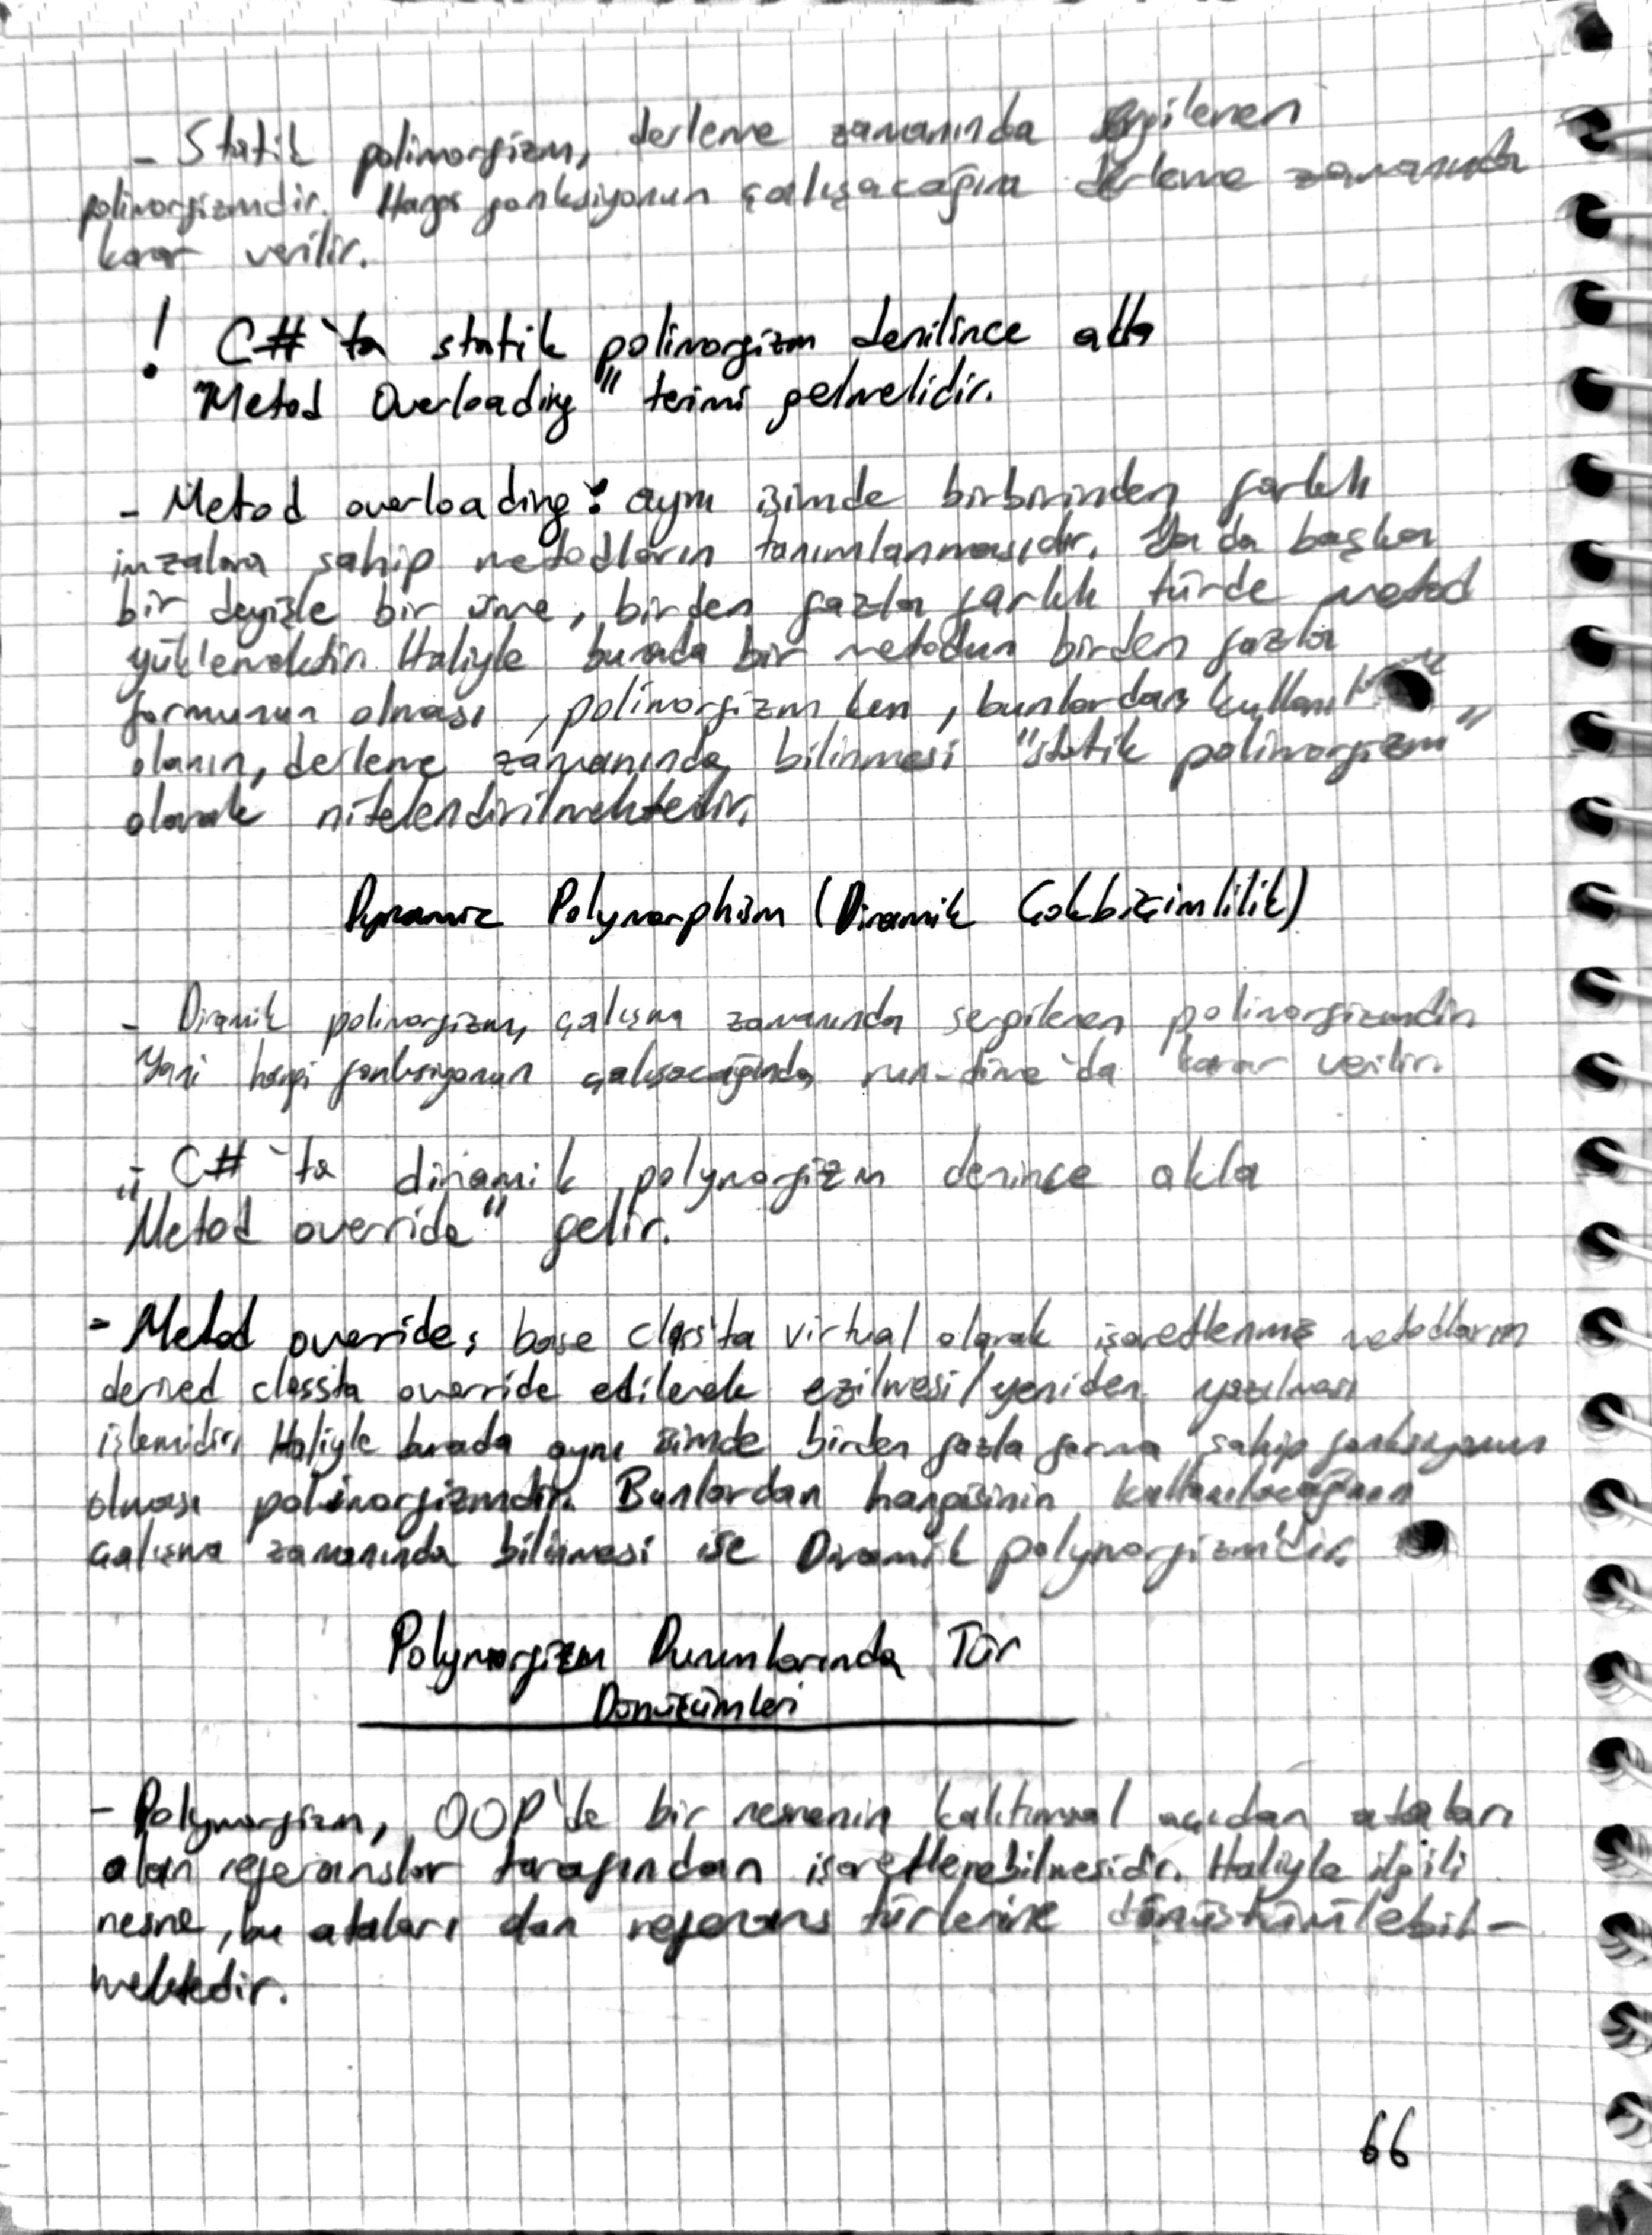 - Statik polimorfizm, derleme zamanında sergilenen
polimorfizmdir. Hangi fonksiyonun çalışacağına derleme zamanında
karar verilir.
! C#'ta statik polimorfizm denilince akla
"Metod Overloading" terimi gelmelidir.
- Metod overloading: aynı isimde birbirinden farklı
imzalara sahip metodların tanımlanmasıdır. Ya da başka
bir deyişle bir isme, birden fazla farklı türde metod
yüklemektir. Haliyle burada bir metodun birden fazla
formunun olması, polimorfizm ken, bunlardan
olanın, derleme zamanında bilinmesi "statik polimorfizm"
olarak nitelendirilmektedir.
Dynamic Polymorphism (Dinamik Çokbiçimlilik)
- Dinamik polimorfizm, çalışma zamanında sergilenen polimorfizmdir.
Yani hangi fonksiyonun çalışacağında run-time'da karar verilir.
- C#'ta dinamik polymorfizm denince akla
"Metod override" gelir.
- Metod override; base class'ta virtual olarak işaretlenmiş metodların
derived classta override edilerek ezilmesi/yeniden yazılması
işlemidir. Haliyle burada aynı isimde birden fazla forma sahip fonksiyonun
olması polimorfizmdir. Bunlardan hangisinin kullanılacağının
çalışma zamanında bilinmesi ise Dinamik polymorfizm'dir.
Polymorfizm Durumlarında Tür
Dönüşümleri
- Polymorfizm, OOP'de bir nesnenin kalıtımsal açıdan ataları
olan referanslar tarafından işaretlenebilmesidir. Haliyle ilgili
nesne, bu ataları olan referans türlerine dönüştürülebil-
mektedir.
66